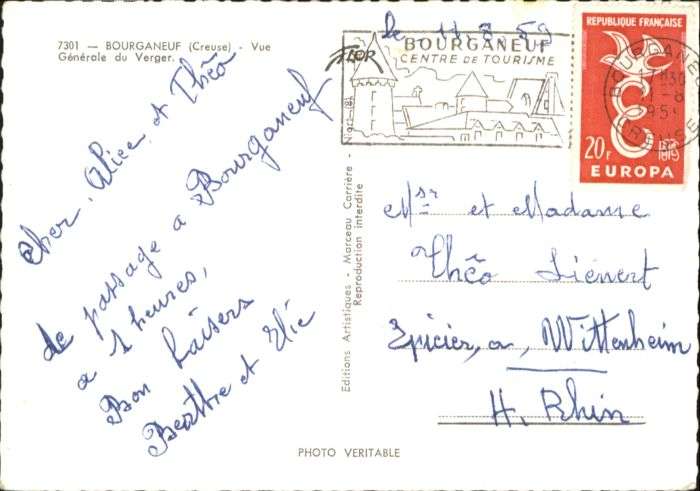 7301 — BOURGANEUF (Creuse) - Vue
Générale du Verger.
Cher, Alice, et Théo
de passage a Bourganeuf
a 1 heures,
Bon baisers
Berthe et Elie
Editions Artistiques - Marceau Carrière -
Reproduction interdite
PHOTO VERITABLE
le 11.8 59
BOURGANEUF
CENTRE DE TOURISME
REPUBLIQUE FRANÇAISE
20F
EUROPA
BOURGANEUF
CREUSE
Msr et Madame
Théo Liénert
Epicier, a, Wittenheim
H. Rhin